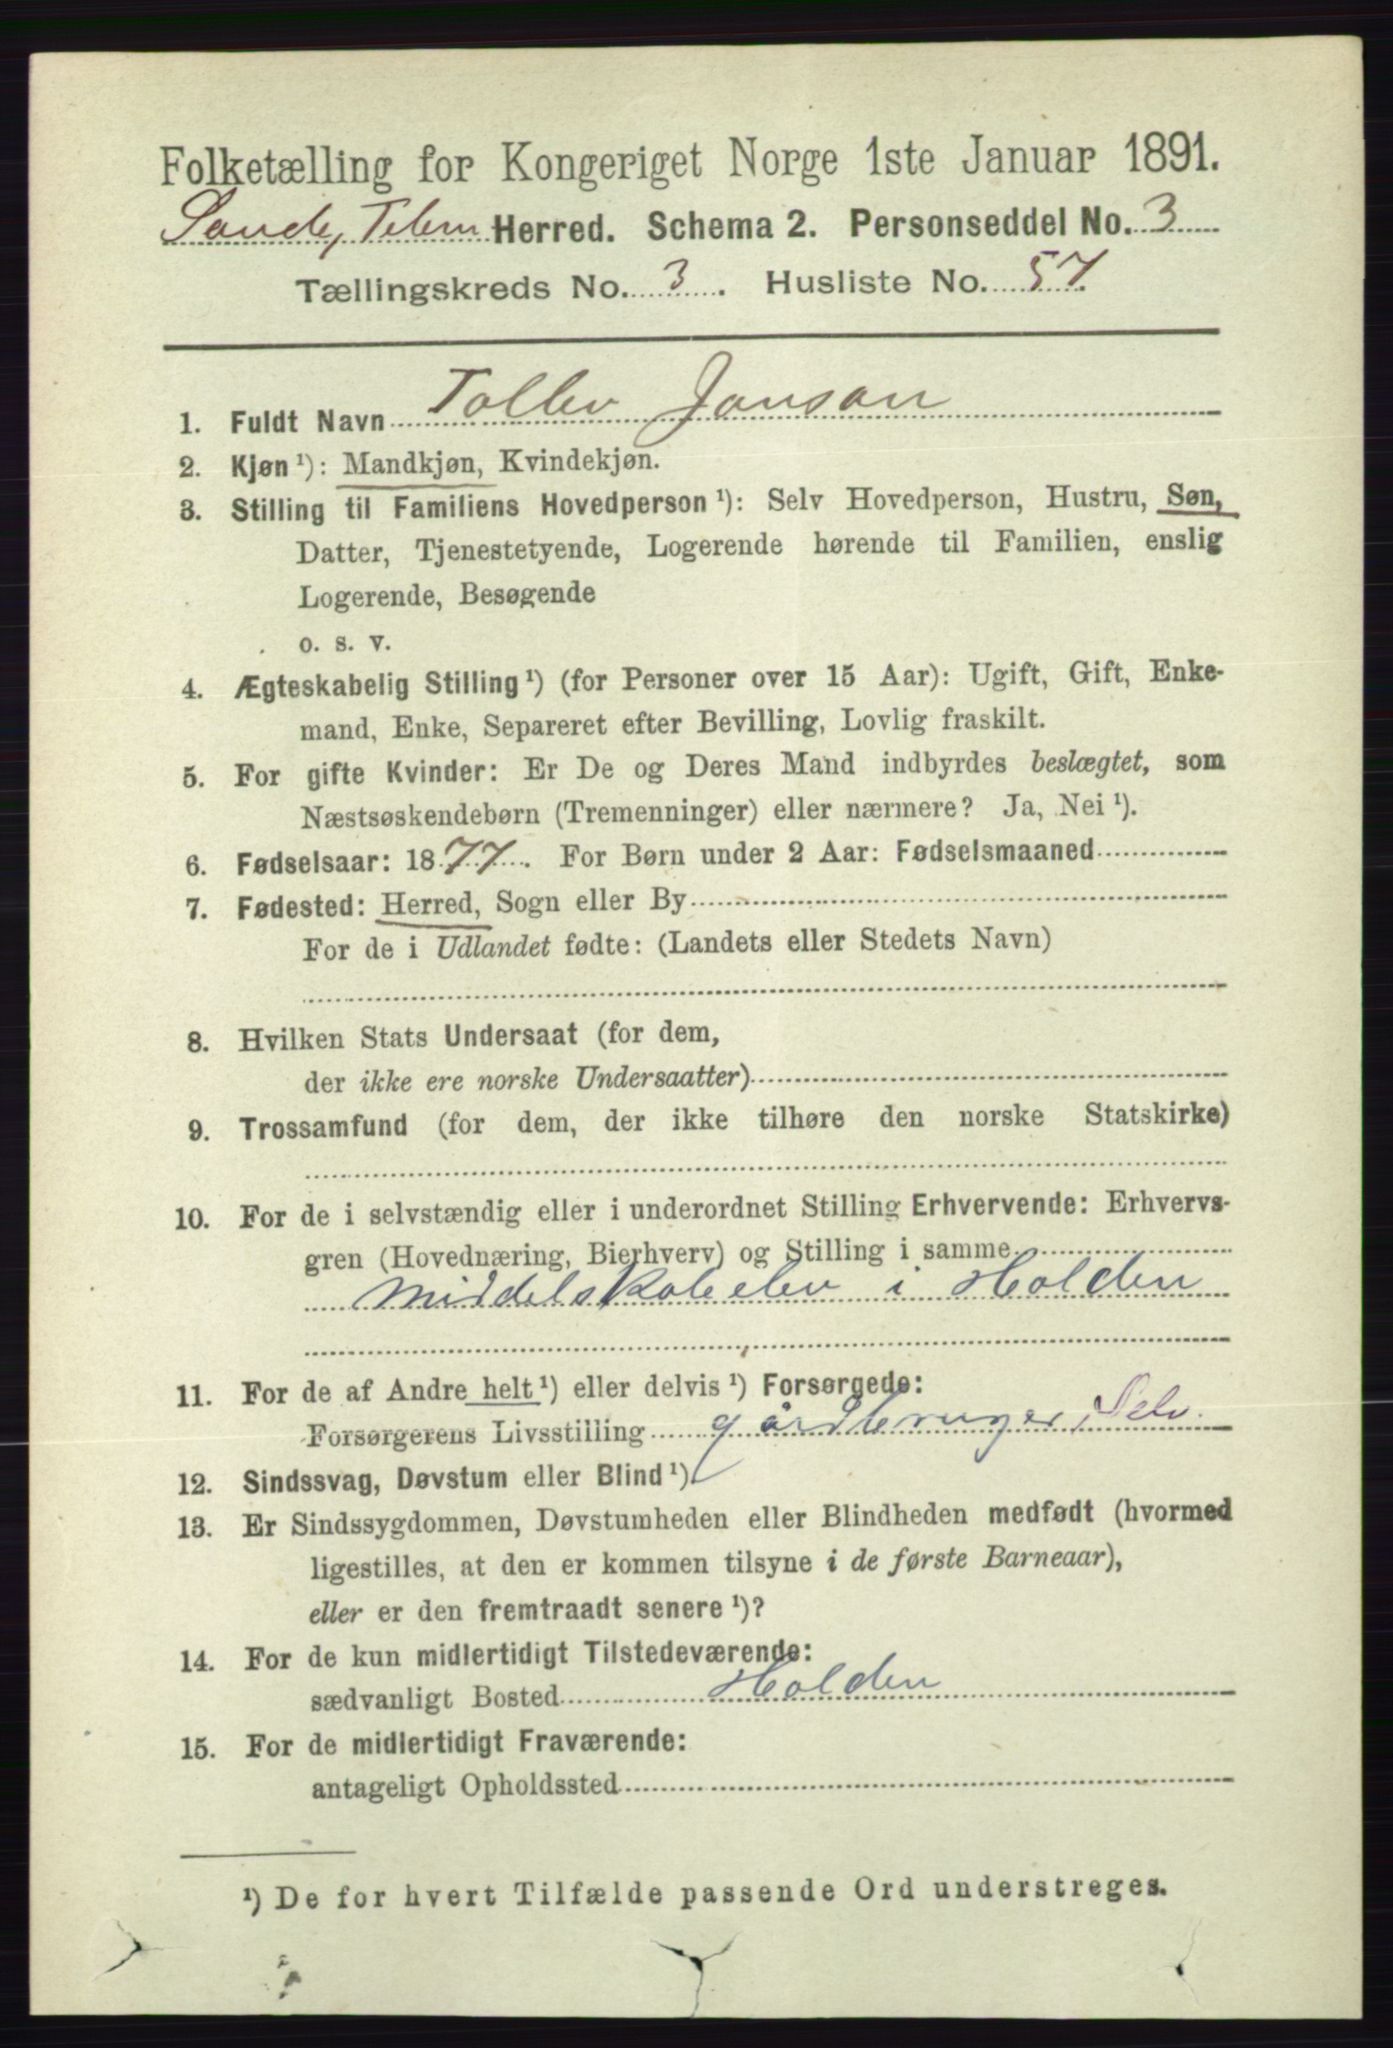 Folketælling for Kongeriget Norge 1ste Januar 1891.
Saude, Telem Herred. Schema 2. Personseddel No. 3
Tællingskreds No. 3. Husliste No. 57.
1. Fuldt Navn Tollev Janson
2. Kjøn ¹): Mandkjøn, Kvindekjøn.
3. Stilling til Familiens Hovedperson ¹): Selv Hovedperson, Hustru, Søn,
Datter, Tjenestetyende, Logerende hørende til Familien, enslig
Logerende, Besøgende
o. s. v.
4. Ægteskabelig Stilling ¹) (for Personer over 15 Aar): Ugift, Gift, Enke-
mand, Enke, Separeret efter Bevilling, Lovlig fraskilt.
5. For gifte Kvinder: Er De og Deres Mand indbyrdes beslægtet, som
Næstsøskendebørn (Tremenninger) eller nærmere? Ja, Nei ¹).
6. Fødselsaar: 1877. For Børn under 2 Aar: Fødselsmaaned
7. Fødested: Herred, Sogn eller By
For de i Udlandet fødte: (Landets eller Stedets Navn)
8. Hvilken Stats Undersaat (for dem,
der ikke ere norske Undersaatter)
9. Trossamfund (for dem, der ikke tilhøre den norske Statskirke)
10. For de i selvstændig eller i underordnet Stilling Erhvervende: Erhvervs-
gren (Hovednæring, Bierhverv) og Stilling i samme
Middelskoleelev i Holden
11. For de af Andre helt ¹) eller delvis ¹) Forsørgede:
Forsørgerens Livsstilling gårdbruger, Selv.
12. Sindssvag, Døvstum eller Blind ¹).
13. Er Sindssygdommen, Døvstumheden eller Blindheden medfødt (hvormed
ligestilles, at den er kommen tilsyne i de første Barneaar),
eller er den fremtraadt senere ¹)?
14. For de kun midlertidigt Tilstedeværende:
sædvanligt Bosted Holden
15. For de midlertidigt Fraværende:
antageligt Opholdssted
¹) De for hvert Tilfælde passende Ord understreges.